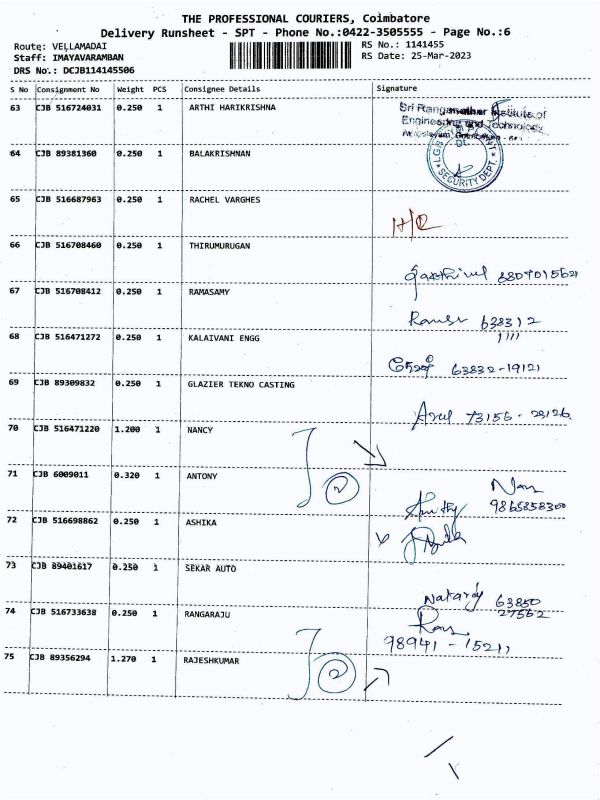 THE PROFESSIONAL COURIERS, Coimbatore
Delivery Runsheet - SPT - Phone No.:0422-3505555 - Page No.:6
Route: VELLAMADAI RS No.: 1141455
Staff: IMAYAVARAMBAN RS Date: 25-Mar-2023
DRS No.: DCJB114145506
S No Consignment No Weight PCS Consignee Details Signature
63 CJB 516724031 0.250 1 ARTHI HARIKRISHNA
Sri Ranganathar Institute of
Engineering and Technology
64 CJB 89381360 0.250 1 BALAKRISHNAN
LGB
SECURITY DEPT.
65 CJB 516687963 0.250 1 RACHEL VARGHES
H/R
66 CJB 516708460 0.250 1 THIRUMURUGAN
67 CJB 516708412 0.250 1 RAMASAMY
638312
68 CJB 516471272 0.250 1 KALAIVANI ENGG
63832-19121
69 CJB 89309832 0.250 1 GLAZIER TEKNO CASTING
Arul 73156-
70 CJB 516471220 1.200 1 NANCY
2
71 CJB 6009011 0.320 1 ANTONY
9865858300
72 CJB 516698862 0.250 1 ASHIKA
73 CJB 89401617 0.250 1 SEKAR AUTO
63850
27562
74 CJB 516733638 0.250 1 RANGARAJU
98941 - 15211
75 CJB 89356294 1.270 1 RAJESHKUMAR
2